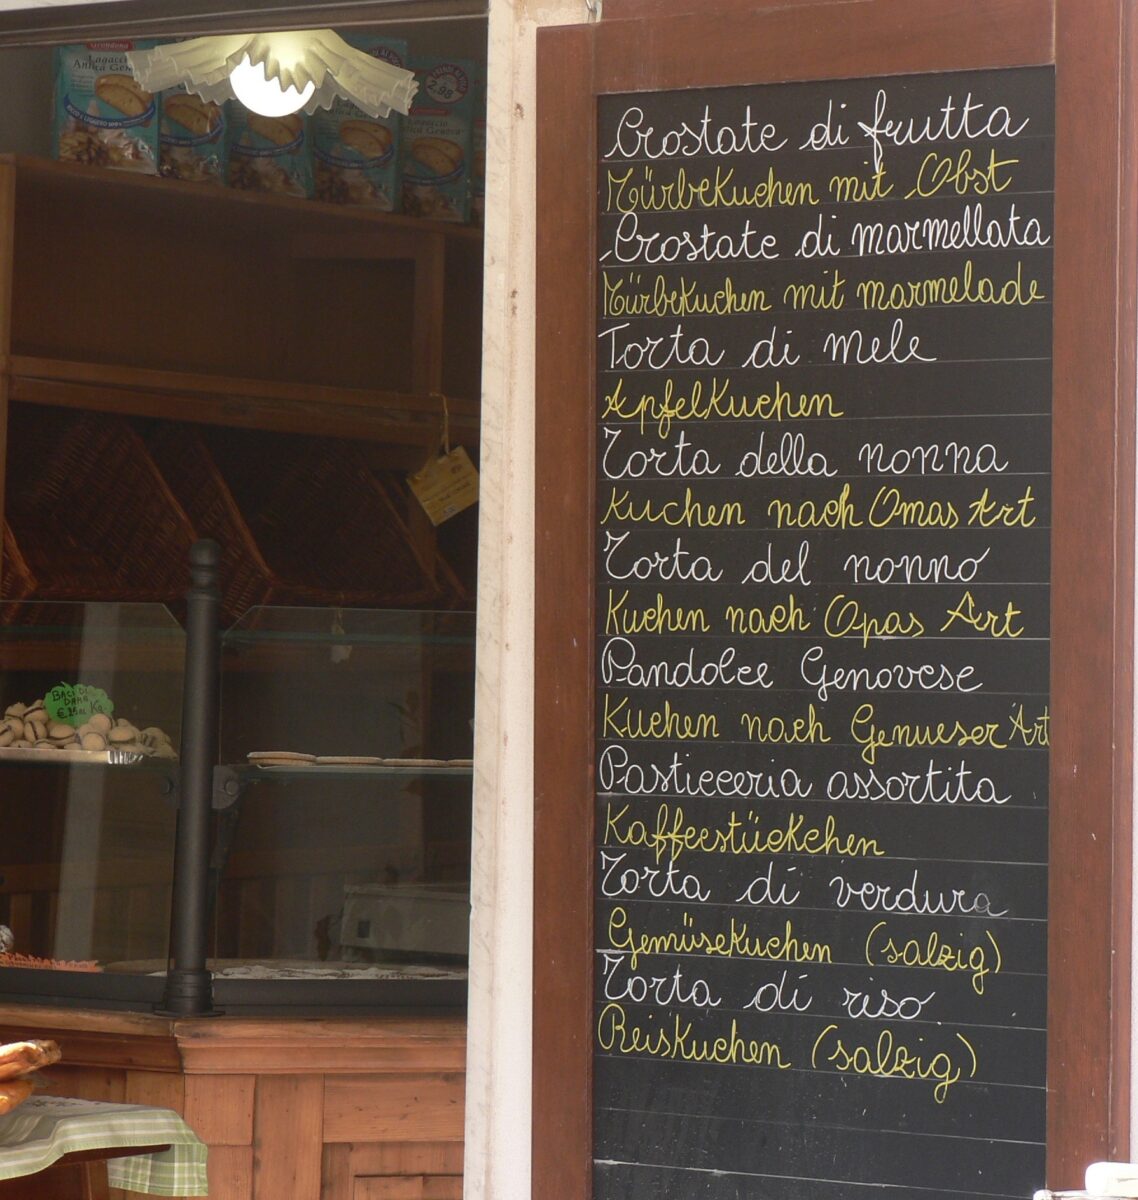 Grondona
Lagaccio
Antica Genova
2,98
BACI DI
DAMA
Crostate di frutta
Mürbekuchen mit Obst
Crostate di marmellata
Mürbekuchen mit marmelade
Torta di mele
Apfelkuchen
Torta della nonna
Kuchen nach Omas Art
Torta del nonno
Kuchen nach Opas Art
Pandolce Genovese
Kuchen nach Genueser Art
Pasticceria assortita
Kaffeestückchen
Torta di verdura
Gemüsekuchen (salzig)
Torta di riso
Reiskuchen (salzig)